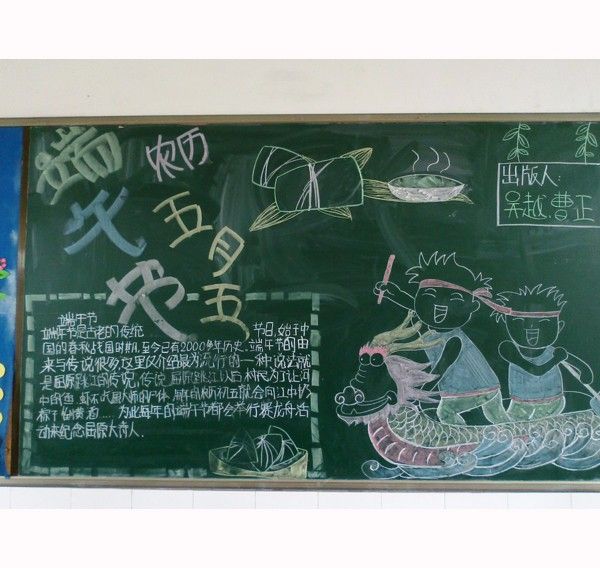 端午节
农历
五月五
出版人:
吴越.曹正
端午节
端午节是古老的传统节日,始于中
国的春秋战国时期,至今已有2000多年历史.端午节的由
来与传说很多这里仅介绍最为流行的一种说法就
是屈原跳江的传说,传说屈原跳江以后村民为了让河
为此每年的端午节都会举行赛龙舟活
动来纪念屈原大诗人.